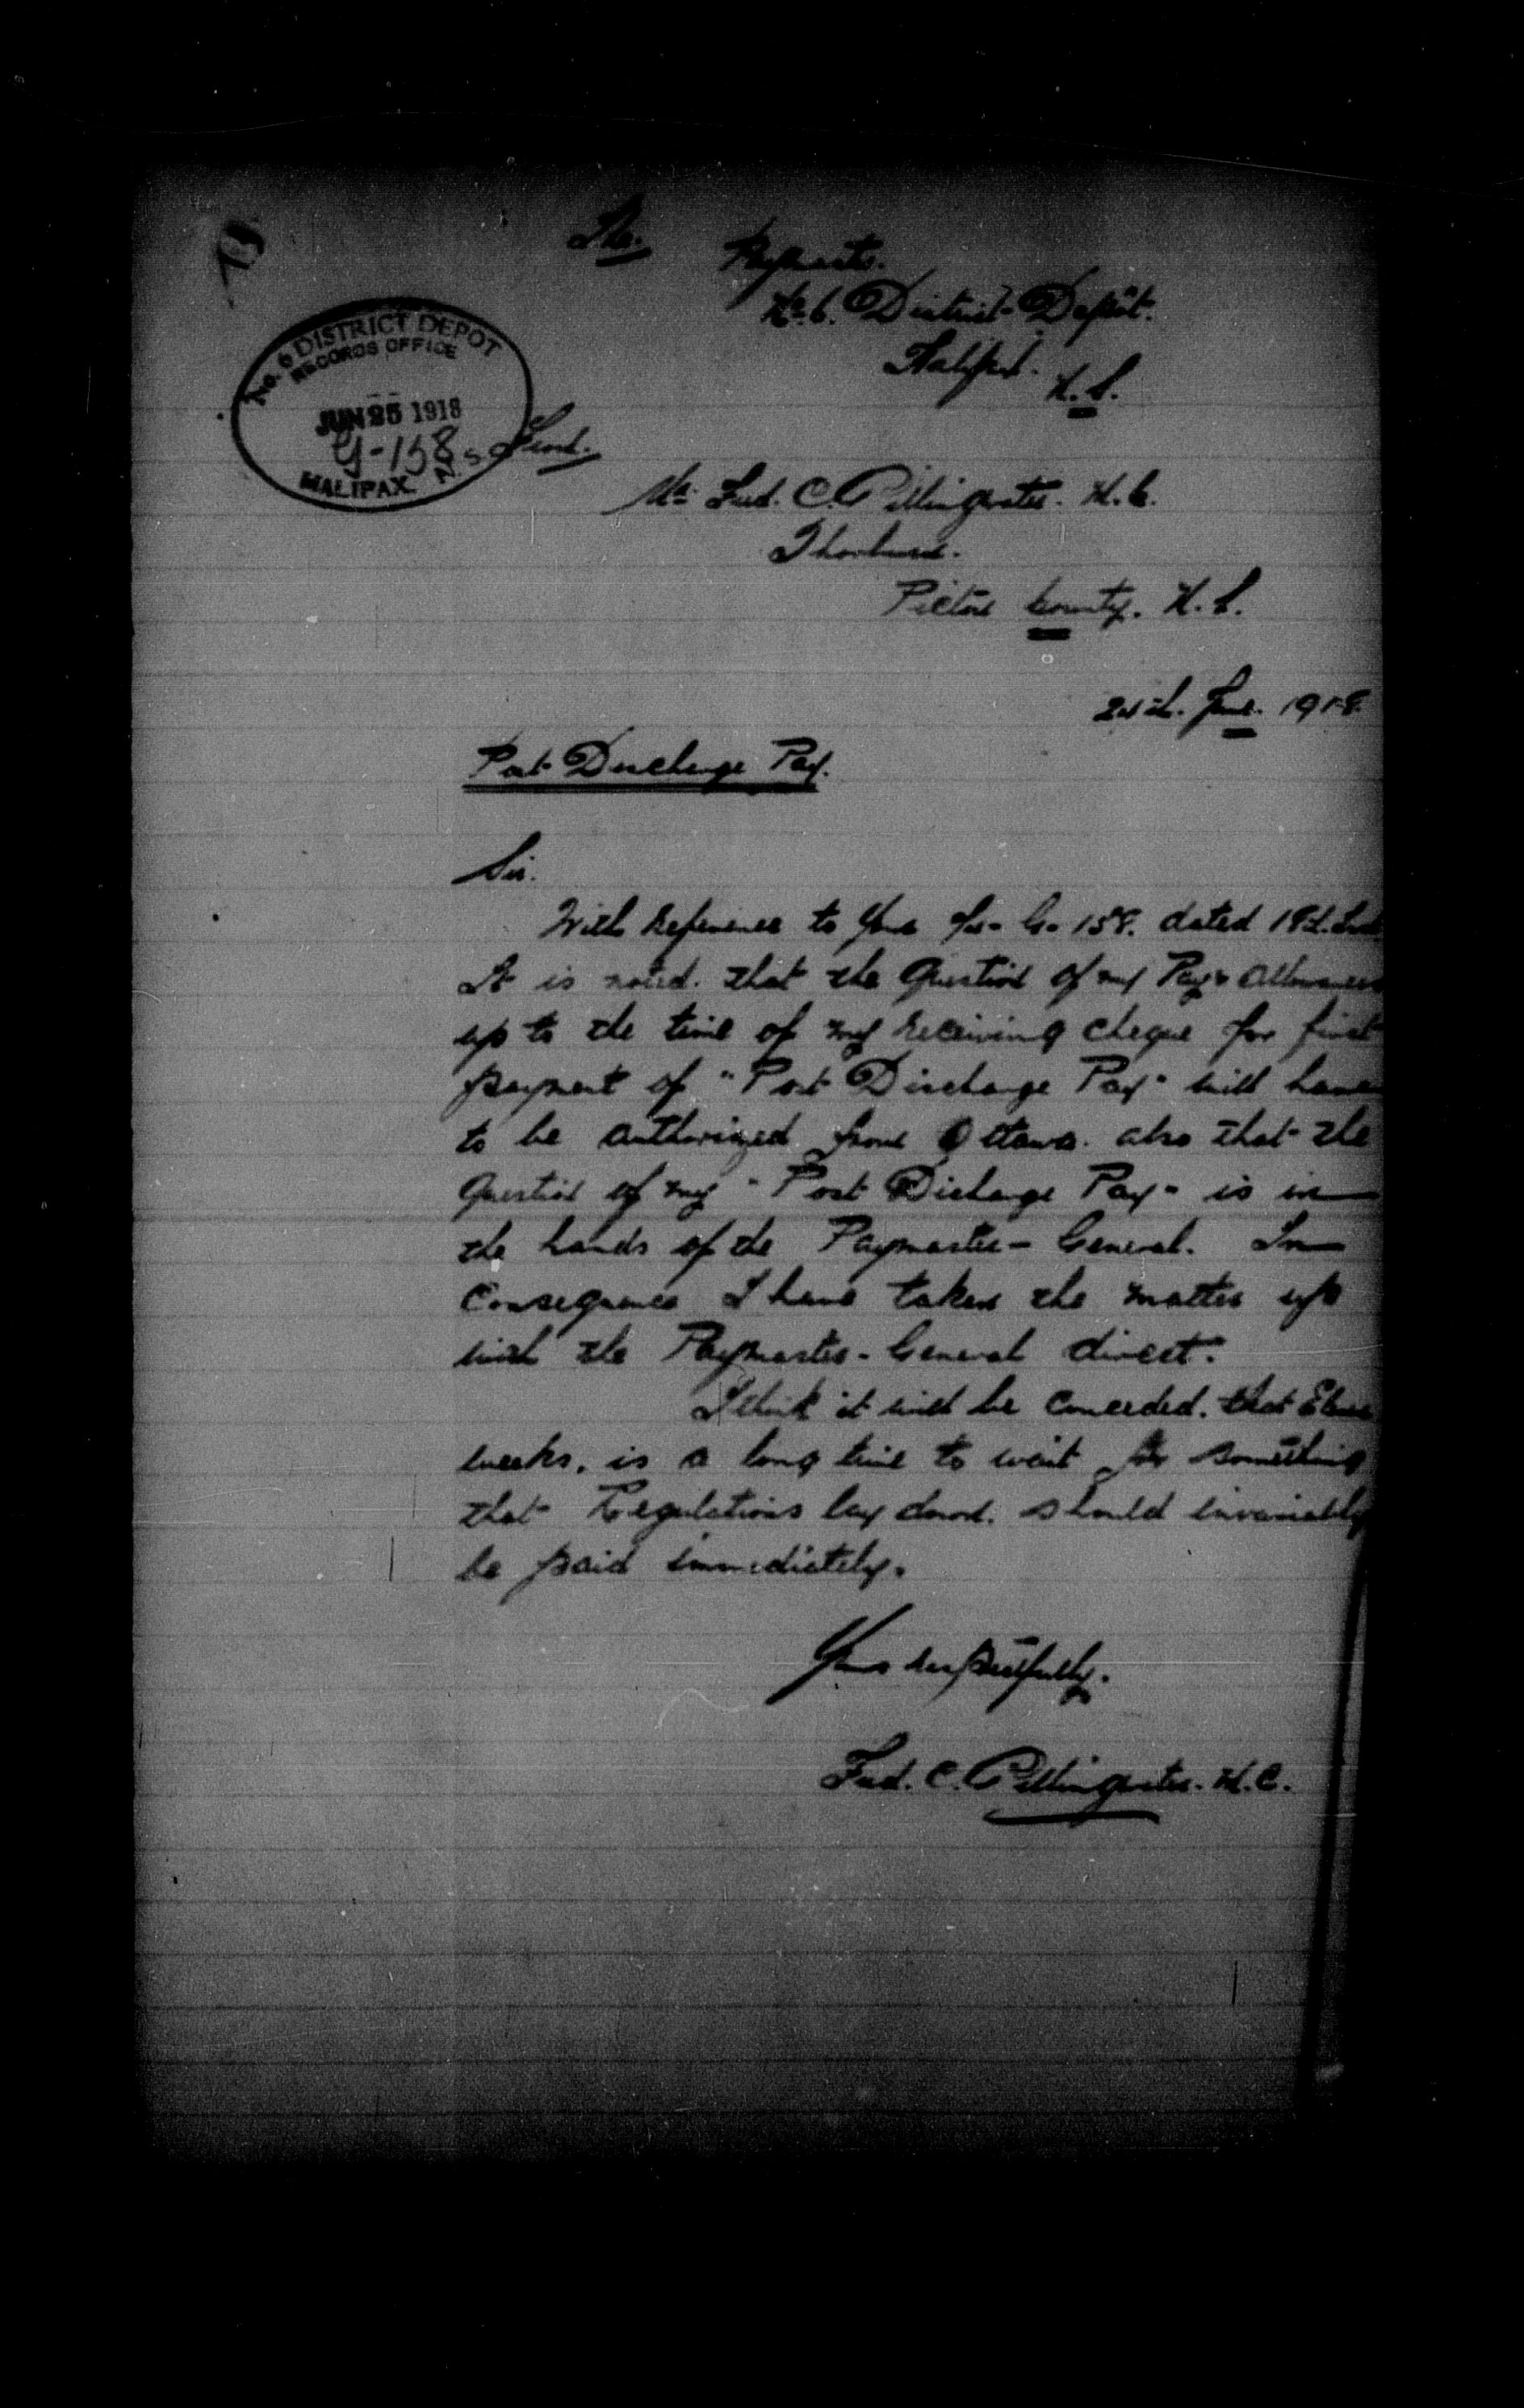 To.
Paymaster.
No. 6. District Depôt.
Halifax.
N.S.
No. 6 DISTRICT DEPOT
RECORDS OFFICE
JUN 25 1918
G-158
HALIFAX N.S.
From.
Mr. Fred. C. Gillingwater. M.C.
Thorburn.
Pictou County. N.S.
24th. June. 1918
Post Discharge Pay.
Sir.
With reference to your G. 158. dated 18th.
It is noted. that the Question of my Pay & Allowances
up to the time of my receiving cheque for first
payment of "Post Discharge Pay" will have
to be authorized from Ottawa. also that the
Question of my "Post Discharge Pay" is in
the hands of the Paymaster-General. In
Consequence I have taken the matter up
with the Paymaster-General direct.
I think it will be conceded. that Eleven
weeks. is a long time to wait for something
that Regulations lay down. should invariably
be paid immediately.
Yours respectfully.
Fred. C. Gillingwater. M.C.